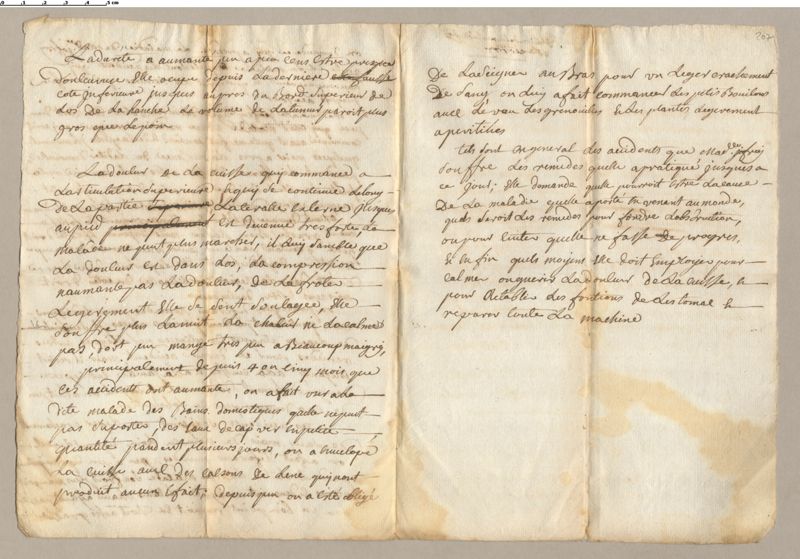 Ladurete a aumanté peu a peu sens Estre presque
douloureuse Elle ocupe depuis La derniere fausse
cote Inferieure jusques aupres du Bord superieur de
Los De La hanche Le volume de La tumeur paroit plus
gros que Le poin
La douleur De La Cuisse quy commance a
Larticulation superieure & quy se continue delong
De La partie superieure Lateralle Externe jusques
au pied principalement est devenue tres forte, La
malade ne peut plus marcher, il Luy semble que
La douleur Est dans Los, La compression
naumante pas La douleur, De La froter
Legerement Elle se sent soulagée, Elle
souffre plus La nuit La chaleur ne La calme
pas, dort peu mange tres peu a Beaucoup maigry,
principalement depuis 4 ou Cinq mois que
Ces accidents ont aumanté, on a fait user a la
dite malade des Bains domestiques quelle ne peut
pas suporter, des Eaux de capver En petite
quantité pandent plusieurs jours, on a Envelopé
La Cuisse avec des calsons de Lene quy nont
produit aucun Efait; depuis peu on a Esté obligé
De La seigner au Bras pour un Leger crachement
De sang on Luy a fait commancer des petis Bouilons
avec Le veau Les grenouiles & des plantes Legerement
aperitives
tels sont En general Les accidents que Mad.elle
souffre Les remedes quelle a pratiqué jusques a
ce jour; Elle demande quelle pourroit Estre La cause
De La malade quelle aporte En venent au monde,
quels seroit Les remedes pour fondre Lobstruction,
ou pour Eviter quelle ne fasse de progres,
Et En fin quels moyens Elle doit Employer pour
calmer ou querir La douleur De La Cuisse, &
pour Retablir des fontions de Lestomac &
reparer toute La machine
207
0 1 2 3 4 5 cm